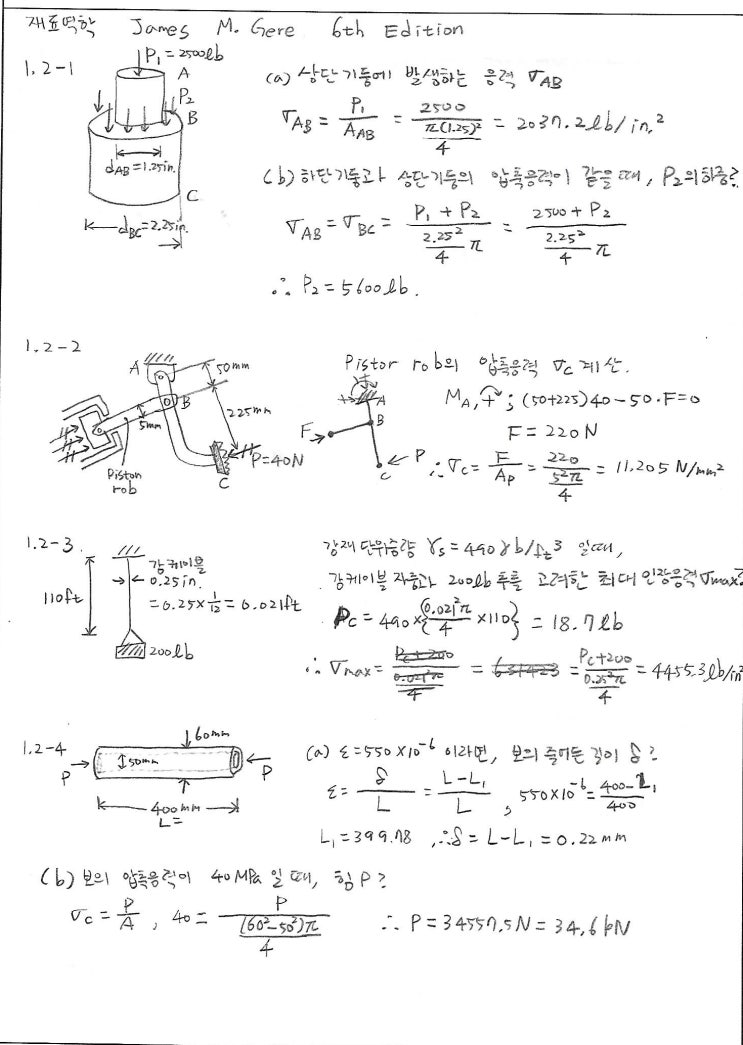 재료역학 James M. Gere 6th Edition
1.2-1
P₁=2500lb
A
P₂
B
d_AB=1.25in.
C
d_BC=2.25in.
(a) 상단기둥에 발생하는 응력 σ_AB
σ_AB = P₁/A_AB = 2500/(π(1.25)²/4) = 2037.2lb/in.²
(b) 하단기둥과 상단기둥의 압축응력이 같을 때, P₂의 하중?
σ_AB = σ_BC = (P₁+P₂)/(2.25²/4 π) = (2500+P₂)/(2.25²/4 π)
∴ P₂=5600lb.
1.2-2
A
50mm
B
5mm
225mm
P=40N
C
Piston
rob
F
A
B
P
C
Pistor rob의 압축응력 σc 계산.
M_A, ↷+ ; (50+225)40-50·F=0
F=220N
∴ σc = F/A_P = 220/(5²π/4) = 11.205 N/mm²
1.2-3
110ft
강케이블
0.25in.
=0.25×1/12=0.021ft
200lb
강재 단위중량 γs=490lb/ft³ 일때,
강케이블 자중과 200lb 추를 고려한 최대 인장응력 σmax?
Pc = 490×{0.021²π/4 ×110} = 18.7lb
∴ σmax = (Pc+200)/(0.021²π/4) = 631423 = (Pc+200)/(0.25²π/4) = 4455.3lb/in²
1.2-4
P
50mm
60mm
P
400mm
L=
(a) ε=550×10⁻⁶ 이라면, 보의 줄어든 길이 δ?
ε = δ/L = (L-L₁)/L , 550×10⁻⁶ = (400-L₁)/400
L₁=399.78 , ∴δ=L-L₁=0.22mm
(b) 보의 압축응력이 40MPa 일 때, 힘 P?
σc = P/A , 40 = P/((60²-50²)π/4) ∴ P=34557.5N=34.6kN